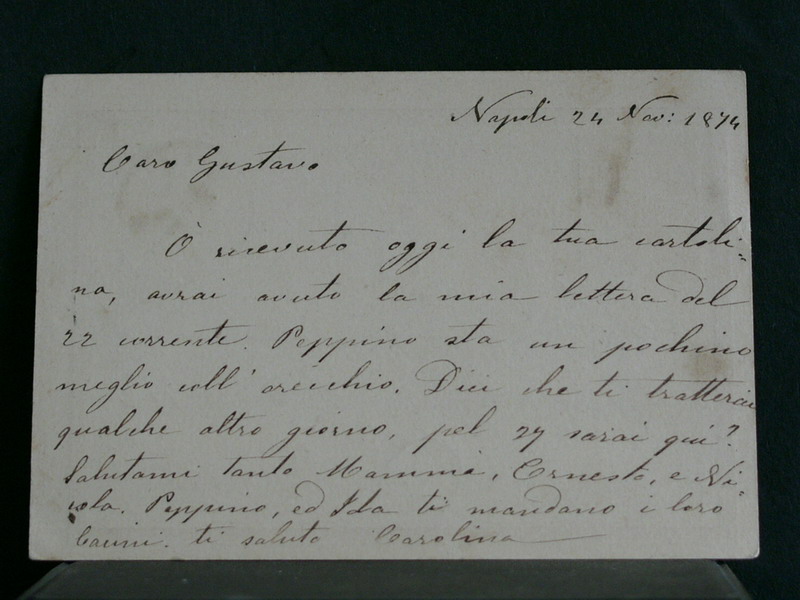 Napoli 24 Nov: 1874
Caro Gustavo
Ò ricevuto oggi la tua cartoli=
na, avrai avuto la mia lettera del
22 corrente. Peppino sta un pochino
meglio coll' orecchio. Dici che ti tratterai
qualche altro giorno, pel 27 sarai qui?
Salutami tanto Mammà, Ernesto, e Ni=
cola. Peppino, ed Ida ti mandano i loro
bacini. ti saluto Carolina